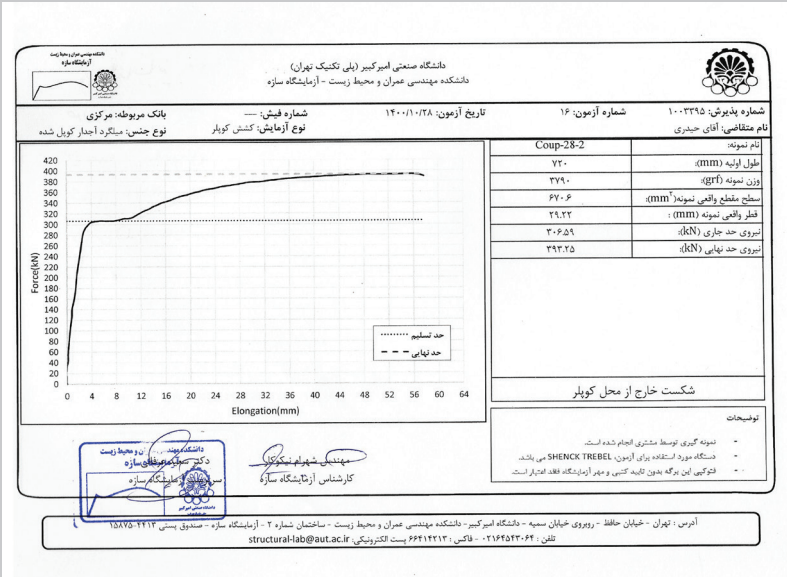 دانشکده مهندسی عمران و محیط زیست
آزمایشگاه سازه
دانشگاه صنعتی امیرکبیر (پلی تکنیک تهران)
دانشکده مهندسی عمران و محیط زیست - آزمایشگاه سازه
شماره پذیرش: ۱۰۰۳۳۹۵
شماره آزمون: ۱۶
تاریخ آزمون: ۱۴۰۰/۱۰/۲۸
شماره فیش: ---
بانک مربوطه: مرکزی
نام متقاضی: آقای حیدری
نوع آزمایش: کشش کوپلر
نوع جنس: میلگرد آجدار کوپل شده
نام نمونه: Coup-28-2
طول اولیه (mm): ۷۲۰
وزن نمونه (grf): ۳۷۹۰
سطح مقطع واقعی نمونه(mm²): ۶۷۰.۶
قطر واقعی نمونه (mm) : ۲۹.۲۲
نیروی حد جاری (kN): ۳۰۶.۵۹
نیروی حد نهایی (kN): ۳۹۳.۲۵
شکست خارج از محل کوپلر
توضیحات
- نمونه گیری توسط مشتری انجام شده است.
- دستگاه مورد استفاده برای آزمون، SHENCK TREBEL می باشد.
- فتوکپی این برگه بدون تایید کتبی و مهر آزمایشگاه فاقد اعتبار است.
Force(kN)
420
400
380
360
340
320
300
280
260
240
220
200
180
160
140
120
100
80
60
40
20
0
0 4 8 12 16 20 24 28 32 36 40 44 48 52 56 60 64
Elongation(mm)
حد تسلیم
حد نهایی
مهندس شهرام نیکوکار
کارشناس آزمایشگاه سازه
دکتر
آزمایشگاه سازه
دانشکده مهندسی عمران و محیط زیست
آزمایشگاه سازه
دانشگاه صنعتی امیرکبیر
آدرس : تهران - خیابان حافظ - روبروی خیابان سمیه - دانشگاه امیرکبیر - دانشکده مهندسی عمران و محیط زیست - ساختمان شماره ۲ - آزمایشگاه سازه - صندوق پستی ۴۴۱۳-۱۵۸۷۵
تلفن : ۰۲۱۶۴۵۴۳۰۶۴ - فاکس : ۶۶۴۱۴۲۱۳ پست الکترونیکی: structural-lab@aut.ac.ir